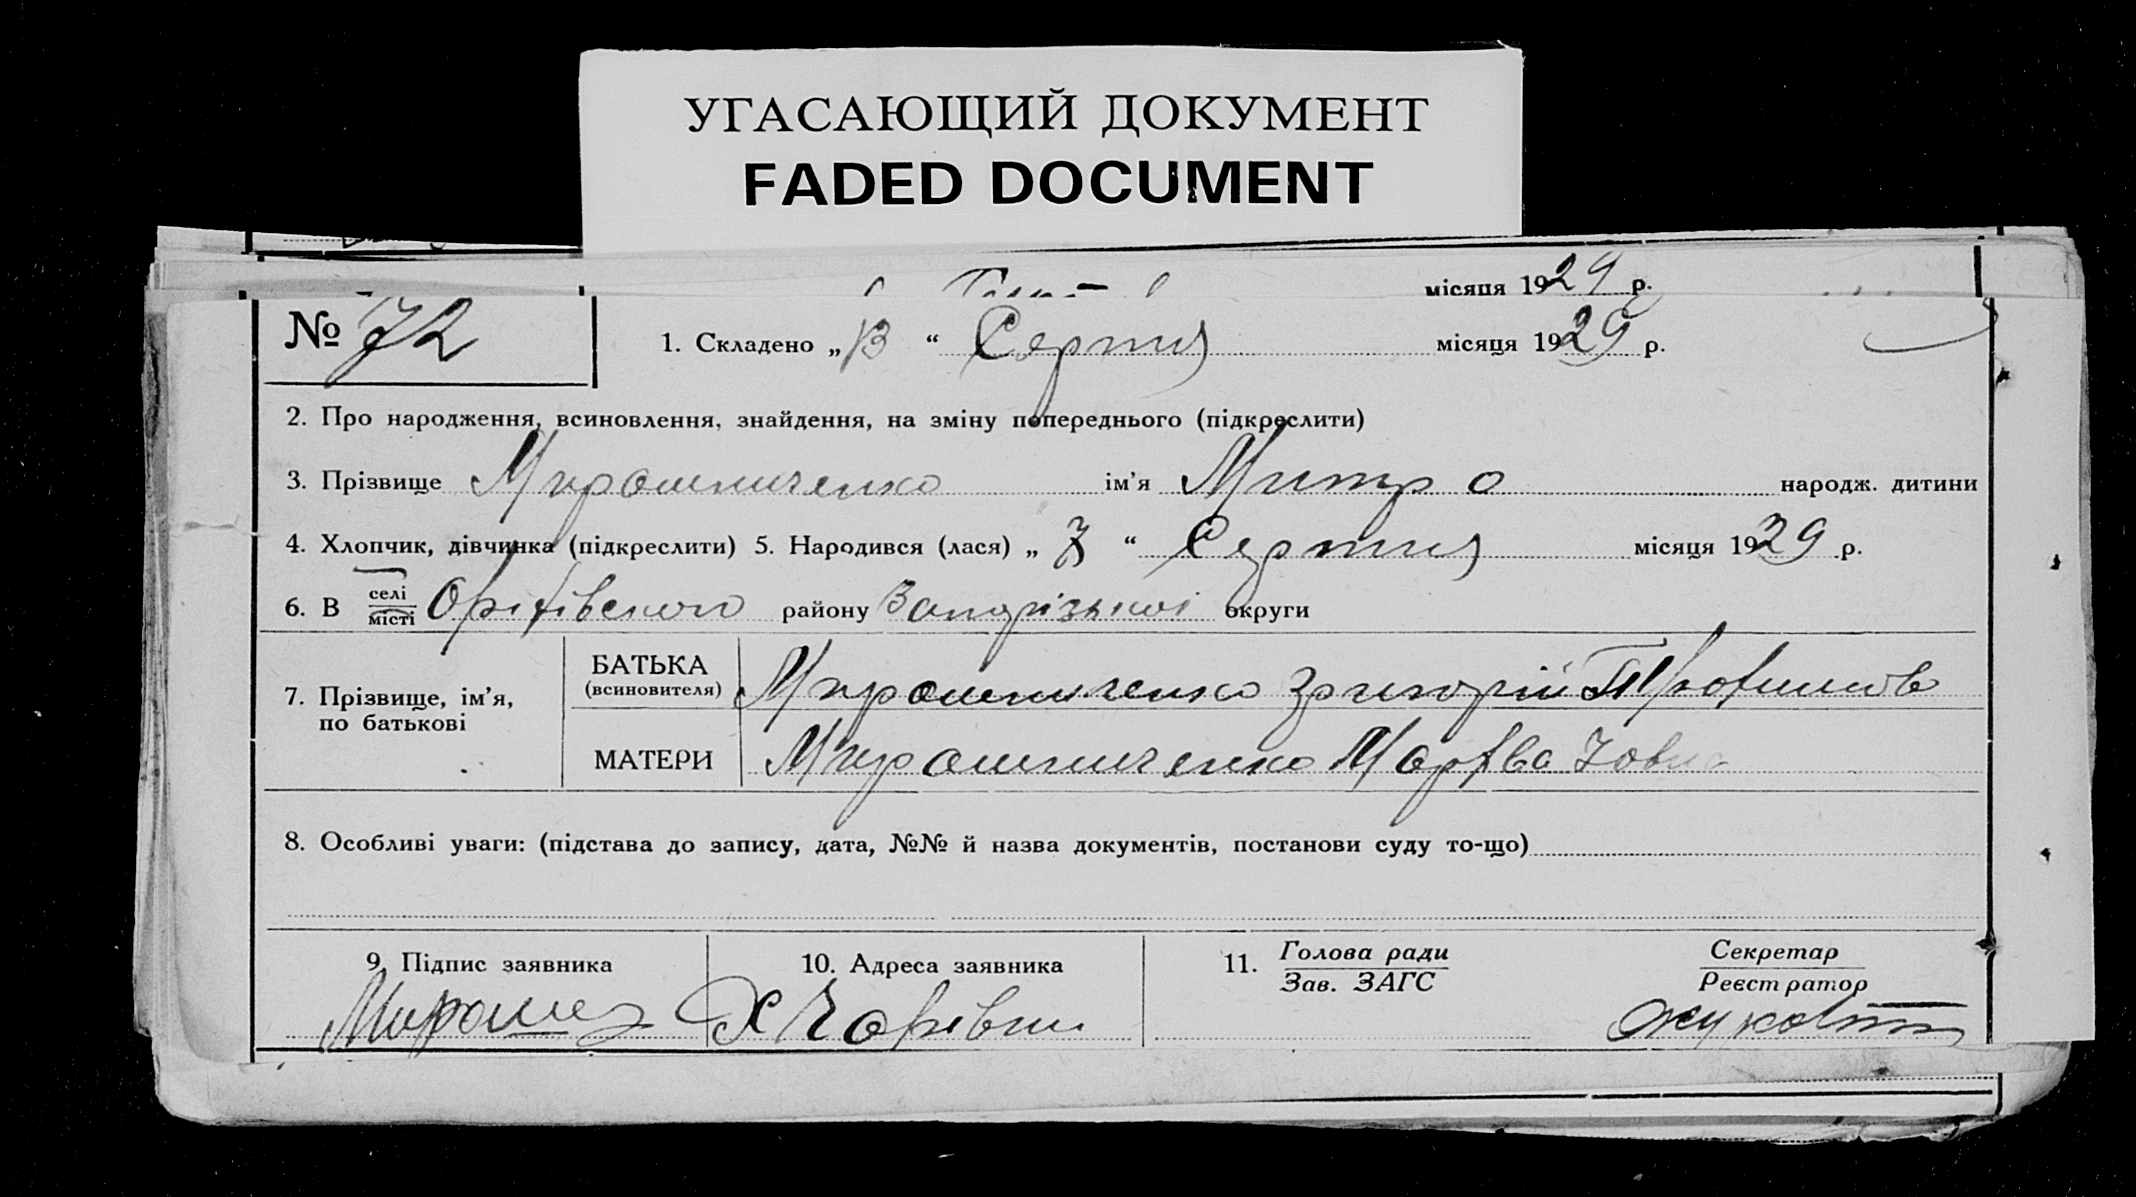 УГАСАЮЩИЙ ДОКУМЕНТ
FADED DOCUMENT
місяця 1929 р.
№ 72
1. Складено „13“ Серпня місяця 1929 р.
2. Про народження, всиновлення, знайдення, на зміну попереднього (підкреслити)
3. Прізвище Мирошниченко ім’я Митро народж. дитини
4. Хлопчик, дівчинка (підкреслити) 5. Народився (лася) „7“ Серпня місяця 1929 р.
6. В селі місті Оріхівського району Запорізької округи
7. Прізвище, ім’я, по батькові
БАТЬКА (всиновителя) Мирошниченко Григорій
МАТЕРИ Мирошниченко Марфа
8. Особливі уваги: (підстава до запису, дата, №№ й назва документів, постанови суду то-що)
9. Підпис заявника 10. Адреса заявника 11. Голова ради Секретар
Зав. ЗАГС Реєстратор
Мирошн Х